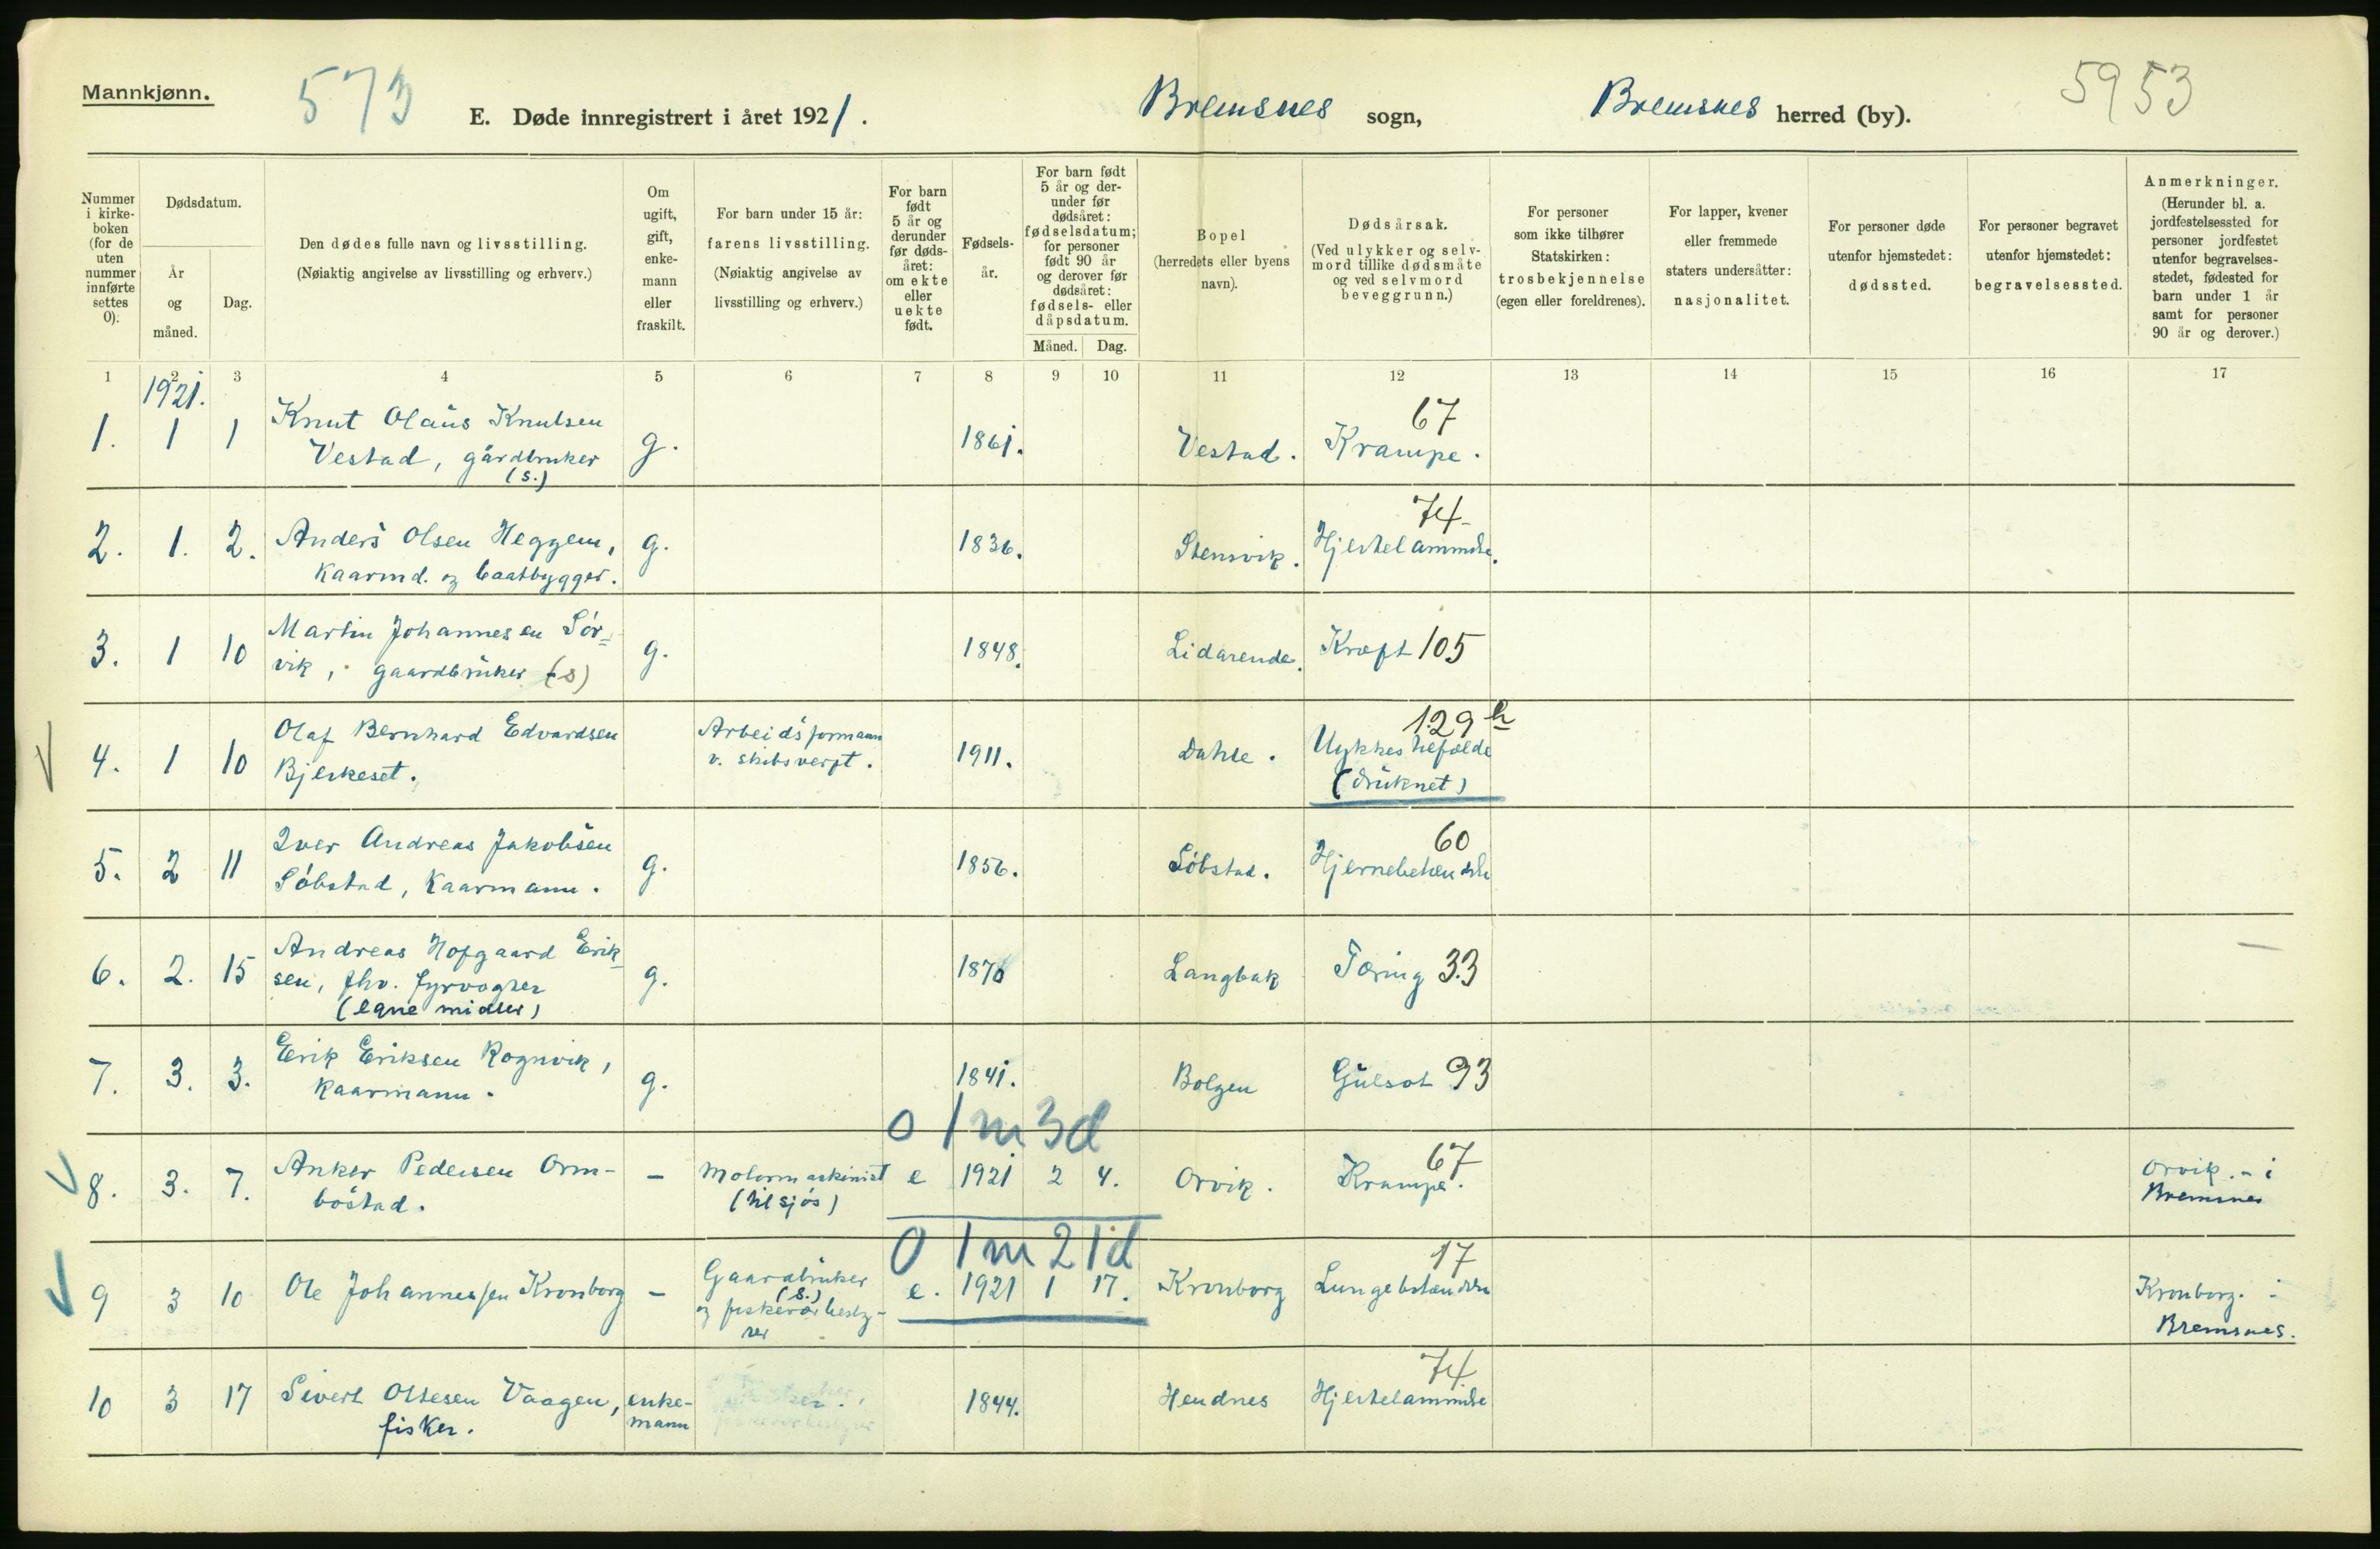 Mannkjønn.
573
E. Døde innregistrert i året 1921.
Bremsnes sogn,
Bremsnes herred (by).
5953
Nummer i kirke-boken (for de uten nummer innførte settes 0).
Dødsdatum.
År og måned.
Dag.
Den dødes fulle navn og livsstilling.
(Nøiaktig angivelse av livsstilling og erhverv.)
Om ugift, gift, enke-mann eller fraskilt.
For barn under 15 år:
farens livsstilling.
(Nøiaktig angivelse av livsstilling og erhverv.)
For barn født 5 år og derunder før døds-året: om ekte eller uekte født.
Fødsels-år.
For barn født 5 år og der-under før dødsåret: fødselsdatum; for personer født 90 år og derover før dødsåret: fødsels- eller dåpsdatum.
Måned.
Dag.
Bopel
(herredets eller byens navn).
Dødsårsak.
(Ved ulykker og selv-mord tillike dødsmåte og ved selvmord beveggrunn.)
For personer som ikke tilhører Statskirken: trosbekjennelse (egen eller foreldrenes).
For lapper, kvener eller fremmede staters undersåtter: nasjonalitet.
For personer døde utenfor hjemstedet: dødssted.
For personer begravet utenfor hjemstedet: begravelsessted.
Anmerkninger.
(Herunder bl. a. jordfestelsessted for personer jordfestet utenfor begravelses-stedet, fødested for barn under 1 år samt for personer 90 år og derover.)
1 2 3 4 5 6 7 8 9 10 11 12 13 14 15 16 17
1921.
1. 1 1 Knut Olaus Knutsen Vestad, gårdbruker (s.) g. 1861. Vestad. Krampe. 67
2. 1. 2. Anders Olsen Heggem, Kaarmd. og baatbygger. g. 1836. Stensvik. Hjertelammelse. 74
3. 1 10 Martin Johannesen Sørvik, gaardbruker (s) g. 1848. Lidarende. Kræft 105
4. 1 10 Olaf Bernhard Edvardsen Bjerkeset. Arbeidsformann v. skibsverft. 1911. Dahle. Ulykkestilfælde (druknet) 129 h
5. 2 11 Iver Andreas Jakobsen Søbstad, Kaarmann. g. 1856. Søbstad. Hjernebetendelse 60
6. 2. 15 Andreas Hofgaard Eriksen, fhv. fyrvogter (egne midler) g. 1870 Langbak Tæring 33
7. 3. 3. Erik Eriksen Rognvik, Kaarmann. g. 1841. Bolgen Gulsot 93
0 1m 3d
8. 3. 7. Anker Pedersen Ormbostad. – Motormaskinist (til sjøs) e 1921 2 4. Orvik. Krampe. 67 Orvik. - i Bremsnes
0 1m 21d
9 3 10 Ole Johannessen Kronborg – Gaardbruker (s.) og fiskeværbestyrer e. 1921 1 17. Kronborg Lungebetændelse 17 Kronborg. - Bremsnes.
10 3 17 Sivert Ottesen Vaagen, fisker. enkemann 1844. Hendnes Hjertelammelse 74